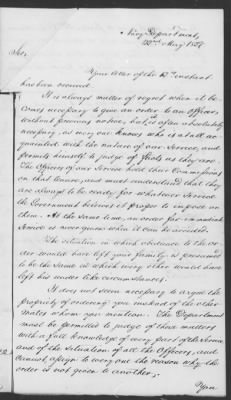 Navy Department,
22nd May 1858
Sir,
Your letter of the 12th instant
has been received.
It is always matter of regret when it be-
comes necessary to give an order to an officer,
without previous notice, but, it often absolutely
necessary, as every one knows who is at all ac-
quainted with the nature of our Service, and
permits himself to judge of facts as they are.
The Officers of our Service hold their Commissions
on this tenure, and must understand that they
are always to be ready for whatever Service
the Government believes it proper to impose on
them. At the same time, an order for immediate
Service is never given when it can be avoided.
The situation in which obedience to the or-
der would have left your family is presumed
to be the same as which every other would have
left his under like circumstances.
It does not seem necessary to argue the
propriety of ordering you instead of the other
mates whom you mention. The Department
must be permitted to judge of these matters
with a full knowledge of every part of the Service
and of the situation of all the Officers, and
cannot assign to every one the reason why the
order is not given to another.